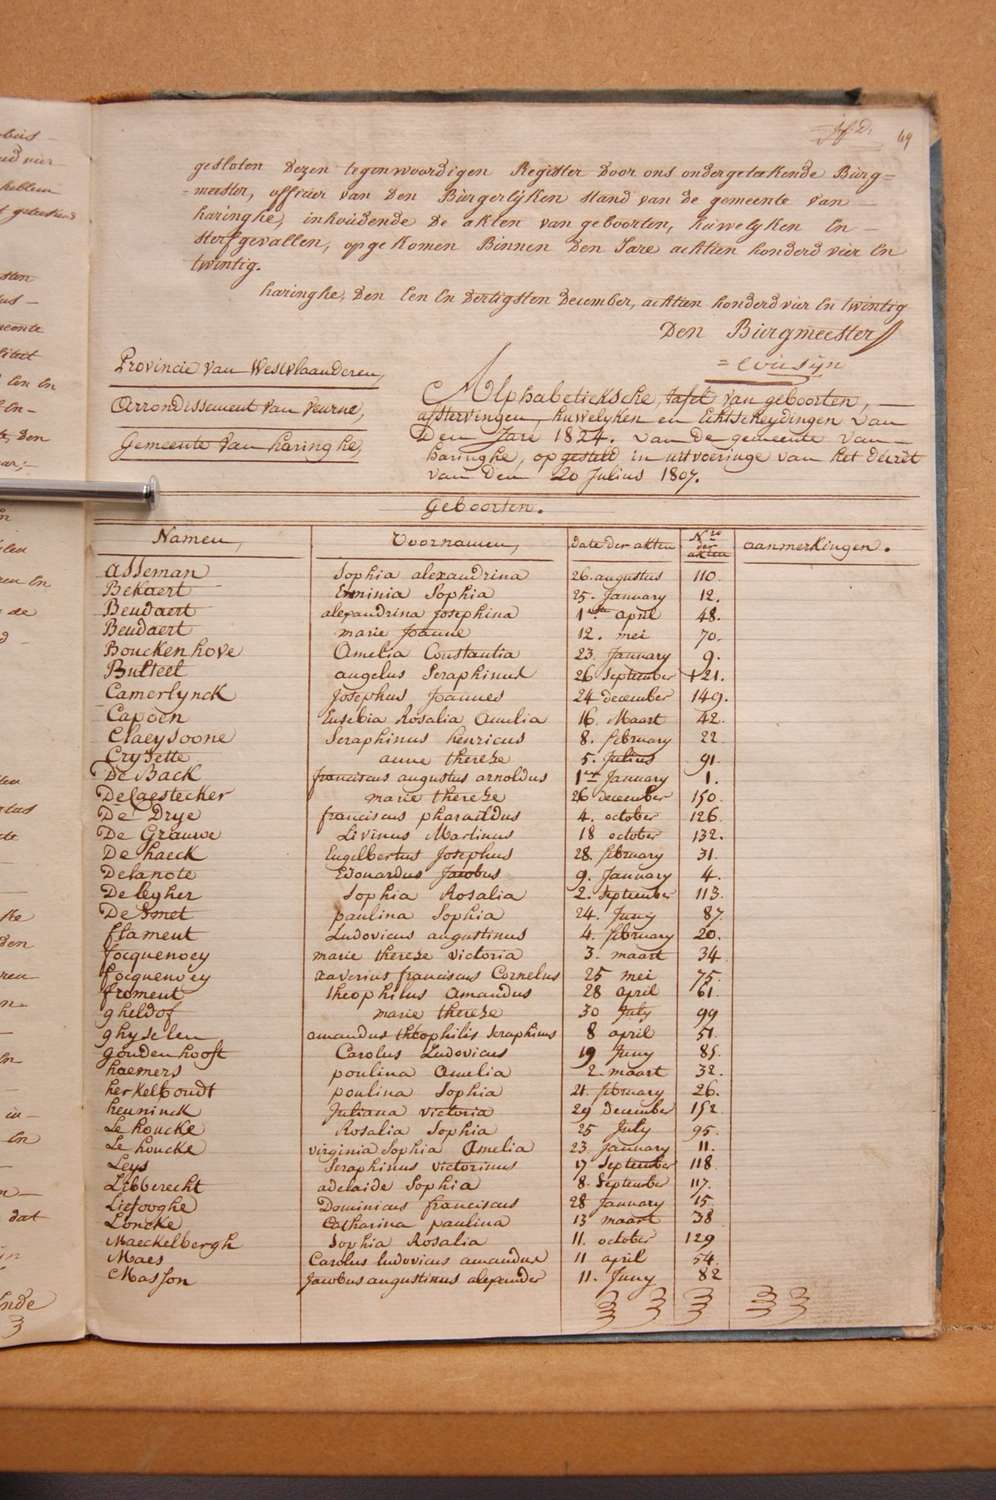 69
gesloten Dezen tegenwoordigen Register Door ons ondergeteekende Burg=
=meester, officier van Den Burgerlijken stand van de gemeente van
haringhe, inhoudende De akten van geboorten, huwelyken En
sterfgevallen, opgekomen Binnen Den Jare achtien honderd vier En
twintig.
haringhe, Den Een En Dertigsten December, achtien honderd vier En twintig
Den Burgmeester
Provincie van Westvlaanderen,
Arrondissement van veurne,
Gemeente van haringhe,
Alphabetieksche tafel van geboorten,
afstervingen, huwelyken en Echtscheydingen van
Den Jare 1824. van De gemeente van
haringhe, opgesteld in uitvoeringe van het decrét
van Den 20 Julius 1807.
Geboorten.
Namen, Voornamen, Date der akten Nro der akten aanmerkingen.
Asseman Sophia alexandrina 26 augustus 110.
Bekaert Erminia Sophia 25. January 12.
Beudaert alexandrina Josephina 1ste april 48.
Beudaert marie Joanne 12. mei 70.
Bouckenhove Amelia Constantia 23. January 9.
Butteel angelus Seraphinus 26 September 121.
Camerlynck Josephus Joannes 24 december 149.
Capoen Eusebia Rosalia Amelia 16. Maart 42.
Claeysoone Seraphinus henricus 8. february 22
Crysette anne therese 5. Julius 91
De Back franciscus augustus arnoldus 1ste January 1.
Delaestecker marie therese 26 december 150.
De Drye franciscus pharaildus 4. october 126
De Grauwe Livinus Martinus 18 october 132.
De haeck Engelbertus Josephus 28. february 31.
Delanote Edouardus Jacobus 9. January 4.
De leyher Sophia Rosalia 2. September 113.
De Smet paulina Sophia 24. Juny 87
flament Ludovicus augustinus 4. february 20.
focquenoey marie therese victoria 3. maart 34
focquenoey xaverius franciscus Cornelus 25 mei 75.
froment theophilus Amandus 28 april 61.
gheldof marie therese 30 July 99
ghyselen amandus theophilis Seraphinus 8 april 51.
goudenhooft Carolus Ludovicus 19 Juny 85.
haemers poulina Amelia 2. maart 32.
herkelboudt poulina Sophia 21. february 26.
heuninck Juliana victoria 29 december 152
Le houcke Rosalia Sophia 25 July 95.
Le houcke virginia Sophia Amelia 23 January 11.
Leys Seraphinus victorinus 17 September 118.
Libberecht adelaide Sophia 8. September 117.
Liefooghe Dominicus franciscus 28 January 15
Loncke Catharina paulina 13 maart 38
Maeckelbergh Sophia Rosalia 11. october 129
Maes Carolus ludovicus amandus 11 april 54.
Masson Jacobus augustinus alexander 11. Juny 82